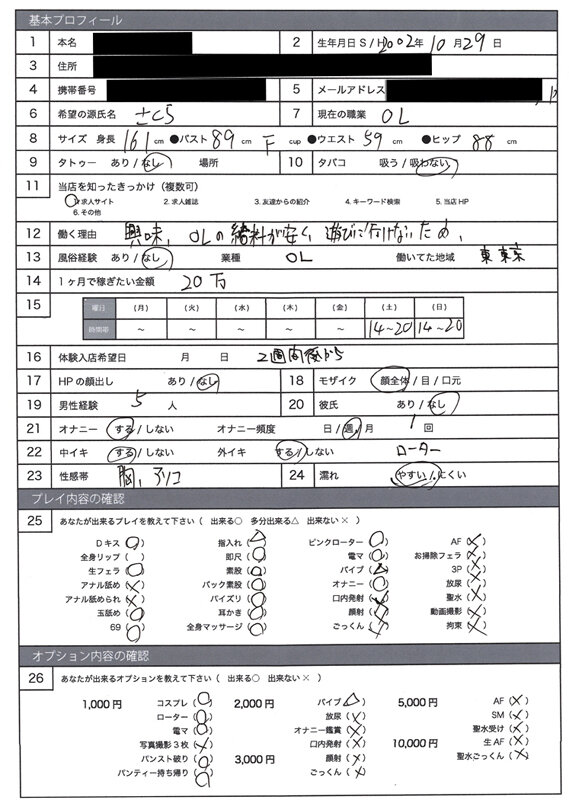 基本プロフィール
1 本名 2 生年月日 S / H 2002年 10月 29日
3 住所
4 携帯番号 5 メールアドレス
6 希望の源氏名 さくら 7 現在の職業 OL
8 サイズ 身長 161 cm ●バスト 89 cm F cup ●ウエスト 59 cm ●ヒップ 88 cm
9 タトゥー あり / なし 場所 10 タバコ 吸う / 吸わない
11 当店を知ったきっかけ（複数可）
1.求人サイト 2.求人雑誌 3.友達からの紹介 4.キーワード検索 5.当店HP
6.その他
12 働く理由 興味、OLの給料が安く、遊びに行けないため、
13 風俗経験 あり / なし 業種 OL 働いてた地域 東京
14 1ヶ月で稼ぎたい金額 20万
15 曜日 （月） （火） （水） （木） （金） （土） （日）
時間帯 ～ ～ ～ ～ ～ 14～20 14～20
16 体験入店希望日 月 日 2週間後から
17 HPの顔出し あり / なし 18 モザイク 顔全体 / 目 / 口元
19 男性経験 5 人 20 彼氏 あり / なし
21 オナニー する / しない オナニー頻度 日 / 週 / 月 1 回
22 中イキ する / しない 外イキ する / しない ローター
23 性感帯 胸、クリ 24 濡れ やすい / にくい
プレイ内容の確認
25 あなたが出来るプレイを教えて下さい（ 出来る○ 多分出来る△ 出来ない× ）
Dキス（○） 指入れ（△） ピンクローター（○） AF（×）
全身リップ（ ） 即尺（○） 電マ（○） お掃除フェラ（×）
生フェラ（○） 素股（○） バイブ（△） 3P（×）
アナル舐め（×） バック素股（○） オナニー（○） 放尿（×）
アナル舐められ（×） パイズリ（○） 口内発射（×） 聖水（×）
玉舐め（○） 耳かき（○） 顔射（×） 動画撮影（×）
69（○） 全身マッサージ（○） ごっくん（×） 拘束（×）
オプション内容の確認
26 あなたが出来るオプションを教えて下さい（ 出来る○ 出来ない× ）
1,000円 コスプレ（○） 2,000円 バイブ（△） 5,000円 AF（×）
ローター（○） 放尿（×） SM（×）
電マ（○） オナニー鑑賞（×） 聖水受け（×）
写真撮影3枚（×） 口内発射（×） 10,000円 生AF（×）
パンスト破り（○） 3,000円 顔射（×） 聖水ごっくん（×）
パンティー持ち帰り（○） ごっくん（×）